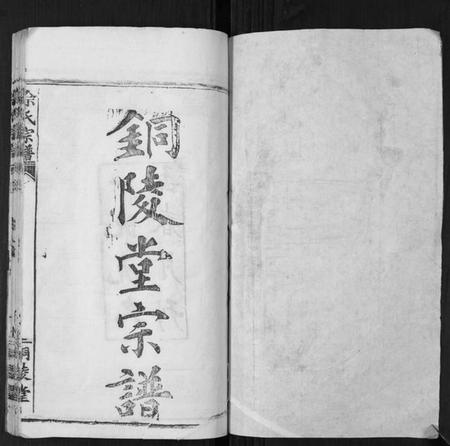 銅陵堂宗譜
氏宗譜
銅陵堂